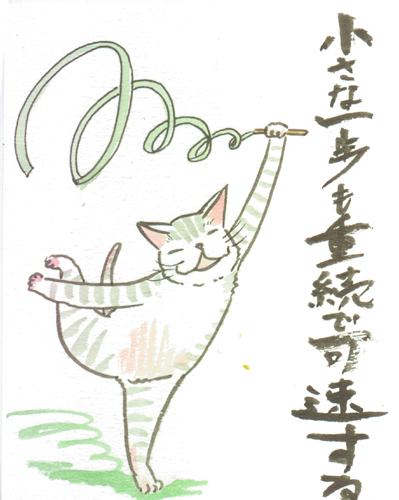 小さな一歩も重続で可速する